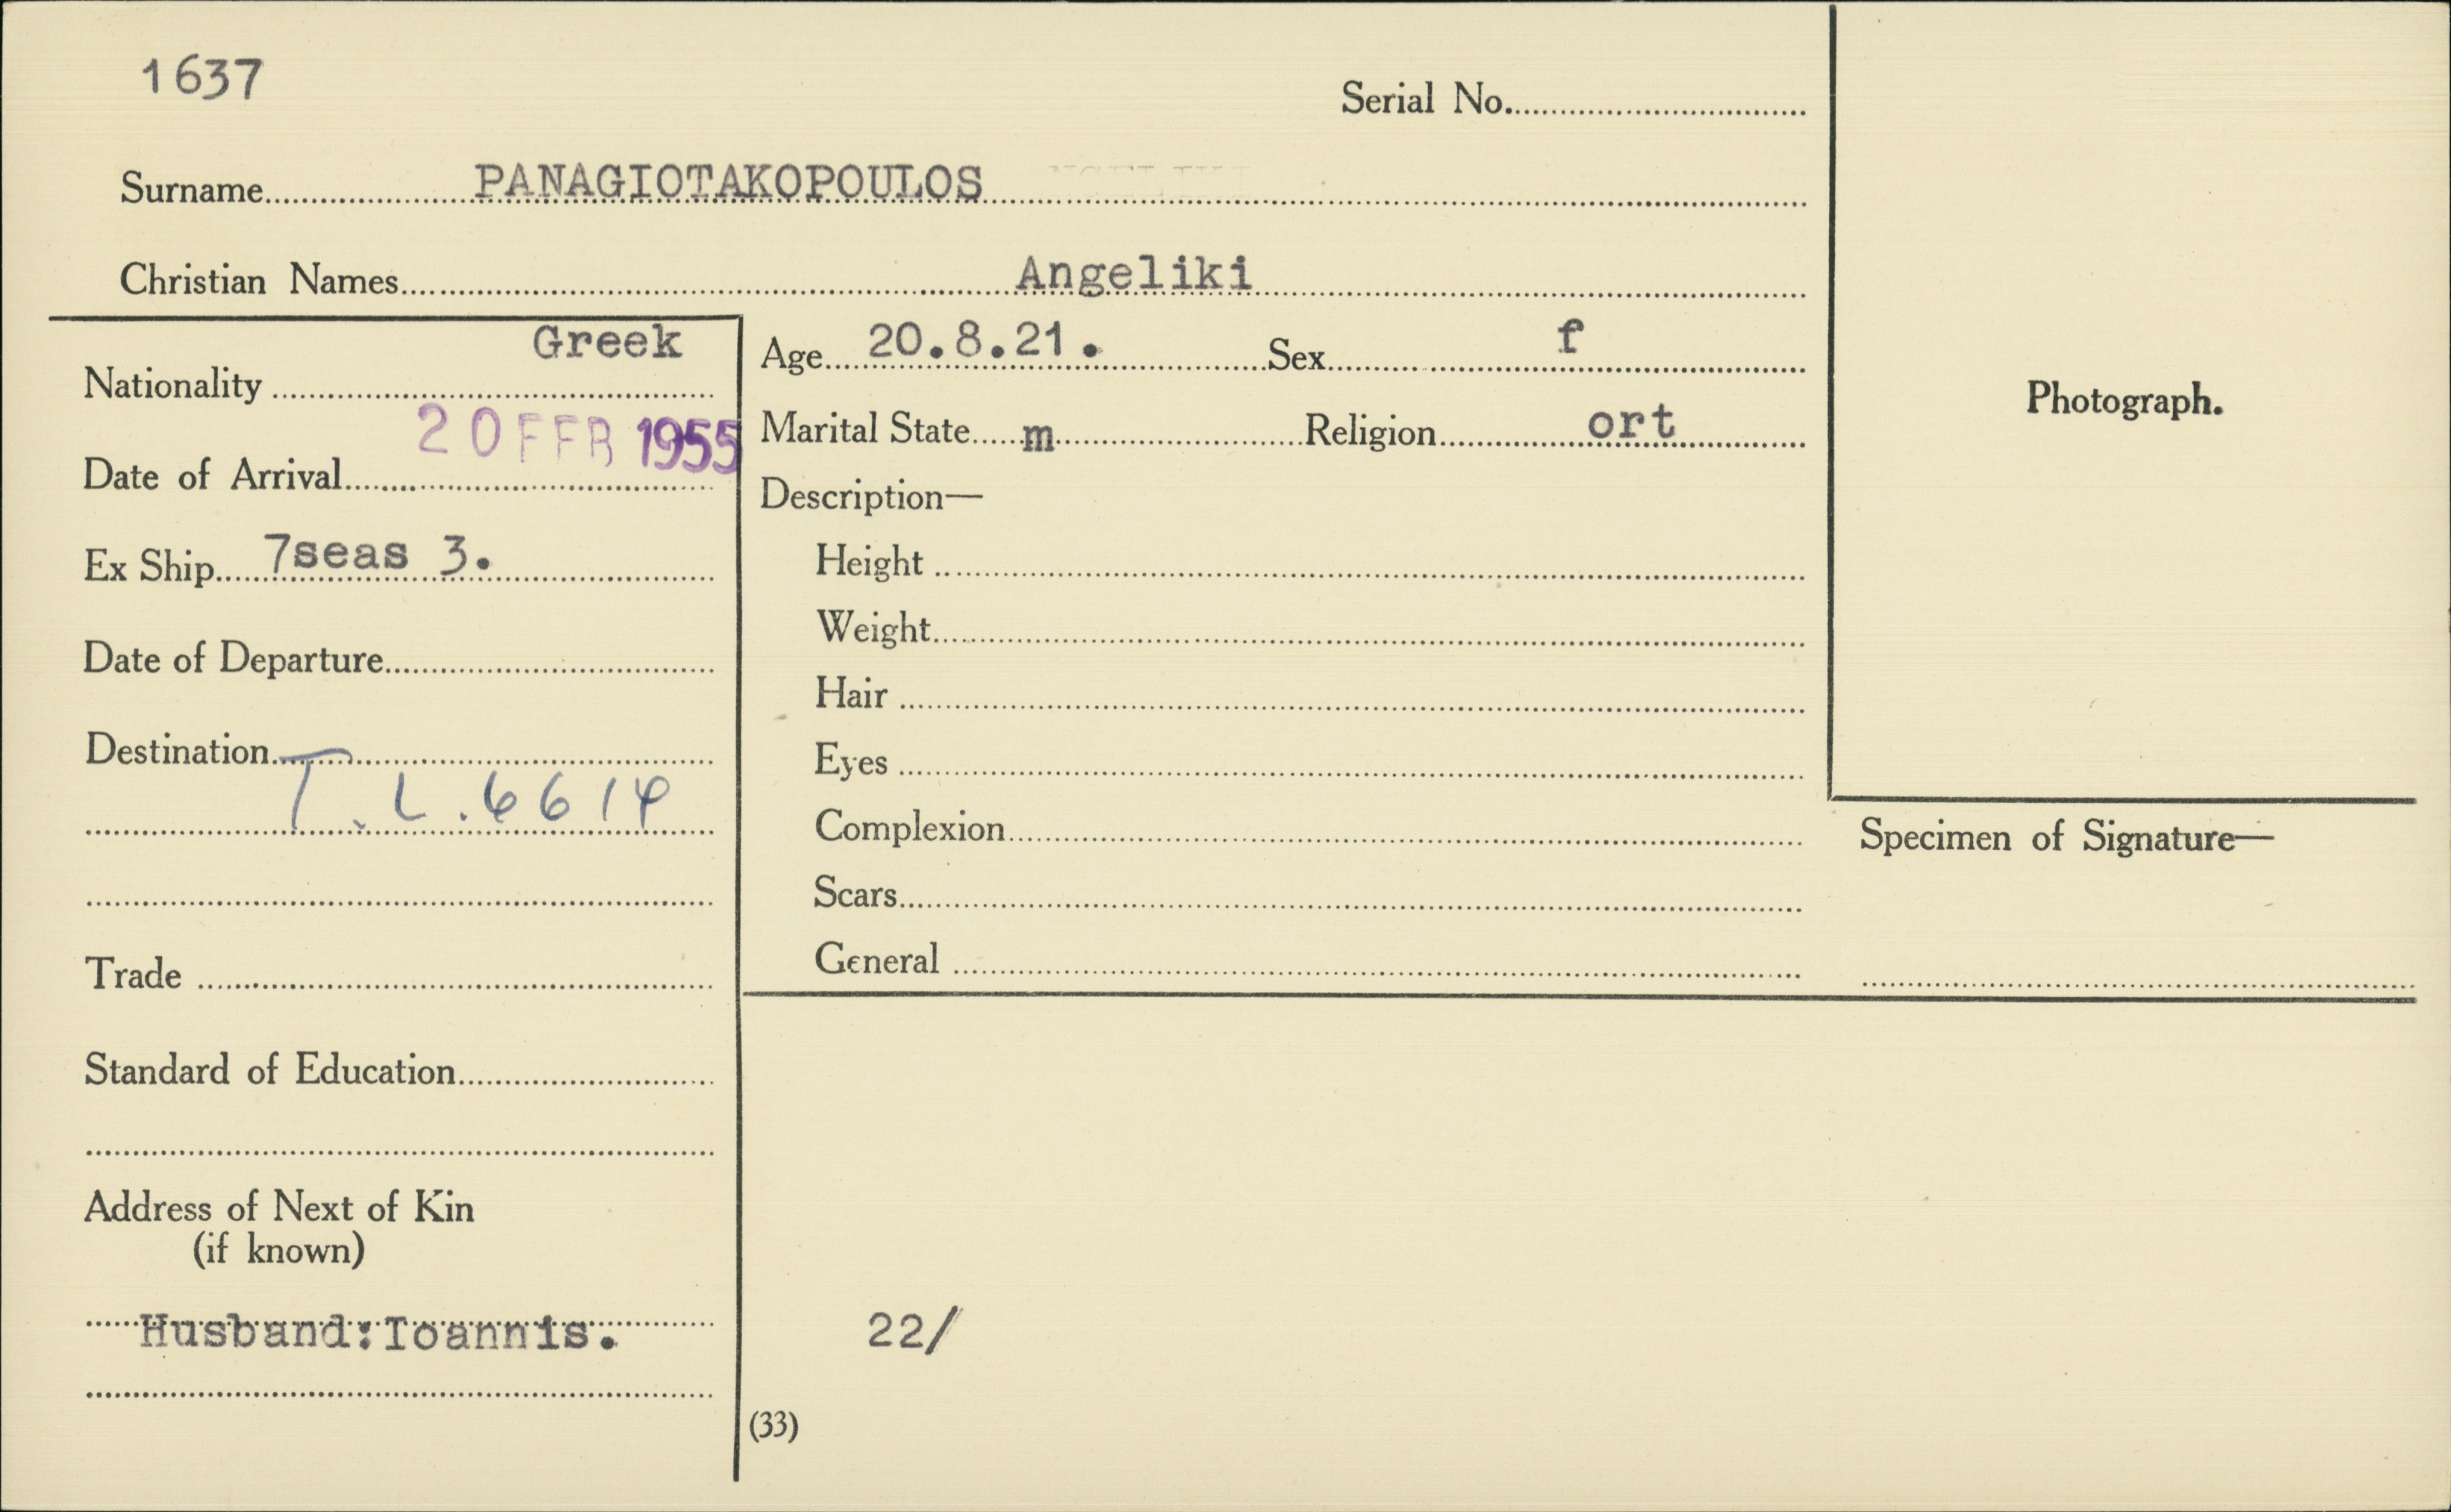 1637
Serial No.
Surname PANAGIOTAKOPOULOS
Christian Names Angeliki
Nationality Greek
Date of Arrival 20 FEB 1955
Ex Ship 7seas 3.
Date of Departure
Destination
T.L.6614
Trade
Standard of Education
Address of Next of Kin
(if known)
Husband:Ioannis.
Age 20.8.21. Sex f
Marital State m Religion ort
Description—
Height
Weight
Hair
Eyes
Complexion
Scars
General
22/
(33)
Photograph.
Specimen of Signature—